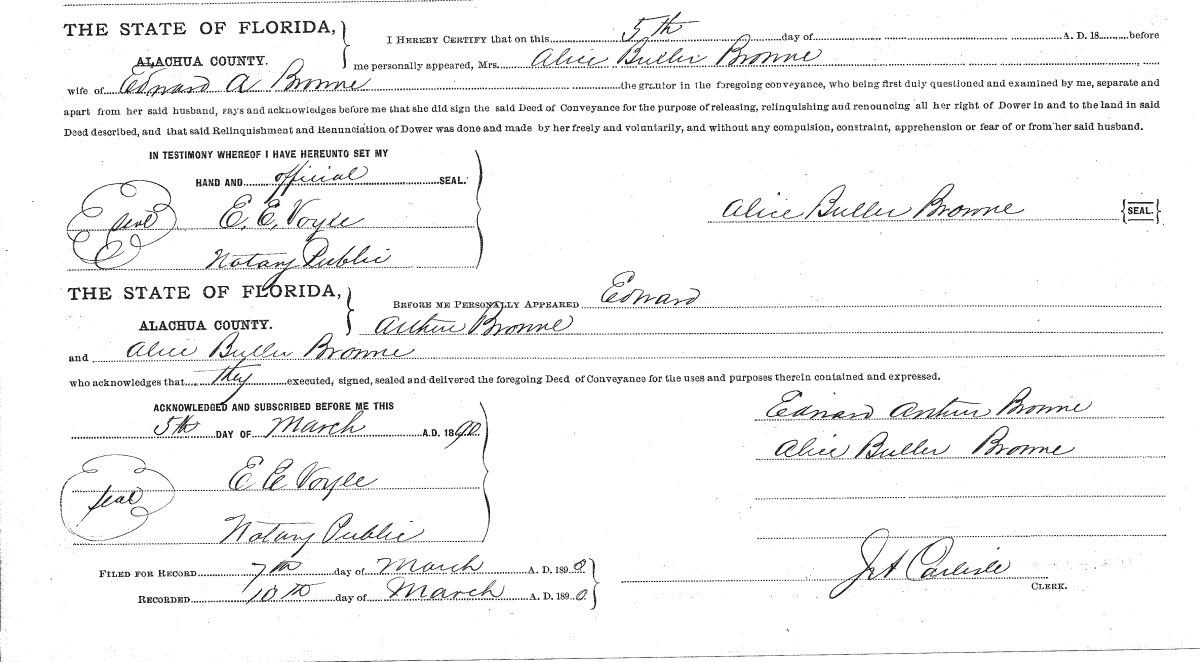 THE STATE OF FLORIDA,
ALACHUA COUNTY.
I HEREBY CERTIFY that on this 5th day of A. D. 18 before
me personally appeared, Mrs. Alice Butler Browne
wife of Edward A Browne the grantor in the foregoing conveyance, who being first duly questioned and examined by me, separate and
apart from her said husband, says and acknowledges before me that she did sign the said Deed of Conveyance for the purpose of releasing, relinquishing and renouncing all her right of Dower in and to the land in said
Deed described, and that said Relinquishment and Renunciation of Dower was done and made by her freely and voluntarily, and without any compulsion, constraint, apprehension or fear of or from her said husband.
IN TESTIMONY WHEREOF I HAVE HEREUNTO SET MY
HAND AND official SEAL.
seal E. E. Voyle
Alice Butler Browne {SEAL.}
Notary Public
THE STATE OF FLORIDA,
ALACHUA COUNTY.
BEFORE ME PERSONALLY APPEARED Edward
Arthur Browne
and Alice Butler Browne
who acknowledges that they executed, signed, sealed and delivered the foregoing Deed of Conveyance for the uses and purposes therein contained and expressed.
ACKNOWLEDGED AND SUBSCRIBED BEFORE ME THIS
5th DAY OF March A.D. 1890
Edward Arthur Browne
Alice Butler Browne
seal E E Voyle
Notary Public
FILED FOR RECORD 7th day of March A. D. 1890
RECORDED 10th day of March A. D. 1890
J A Carlisle
CLERK.